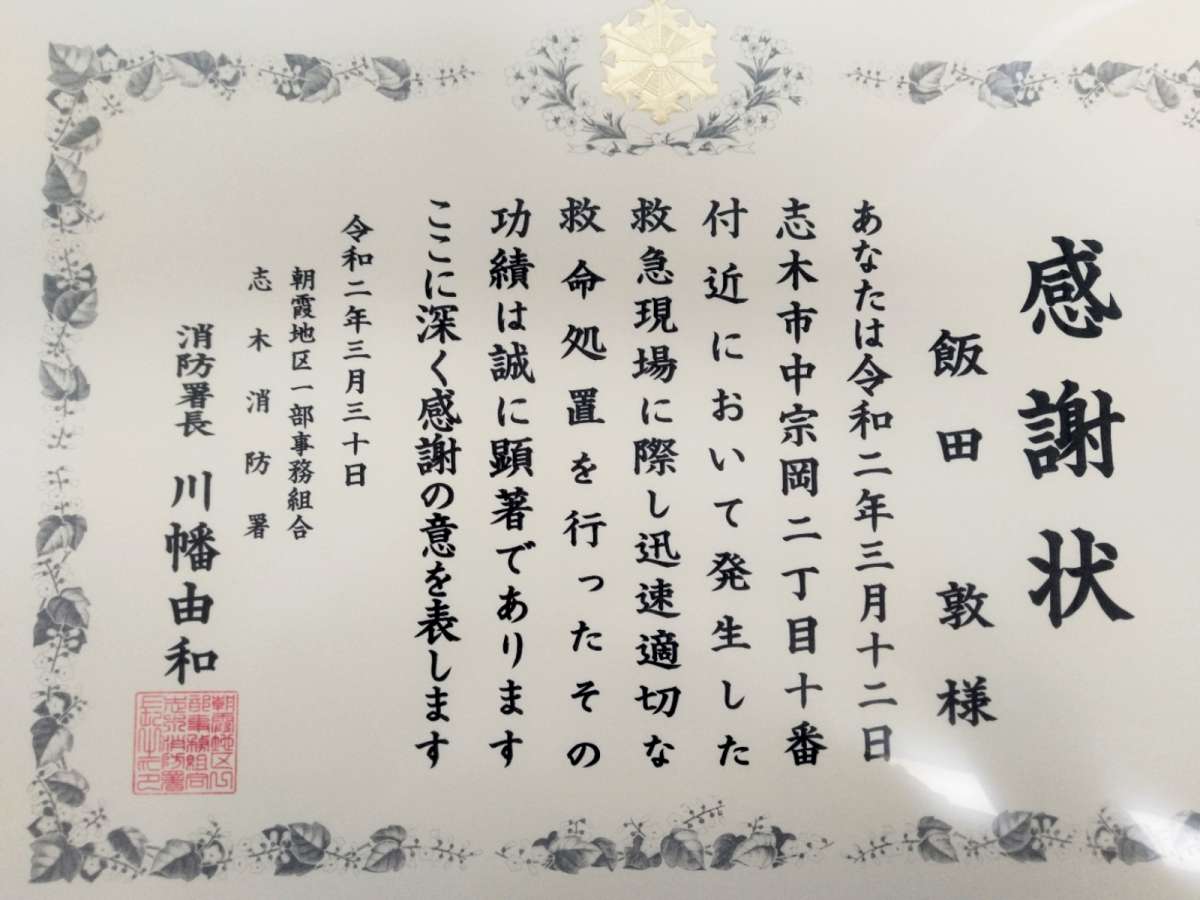 感謝状
飯田敦様
あなたは令和二年三月十二日
志木市中宗岡二丁目十番
付近において発生した
救急現場に際し迅速適切な
救命処置を行ったその
功績は誠に顕著であります
ここに深く感謝の意を表します
令和二年三月三十日
朝霞地区一部事務組合
志木消防署
消防署長 川幡由和